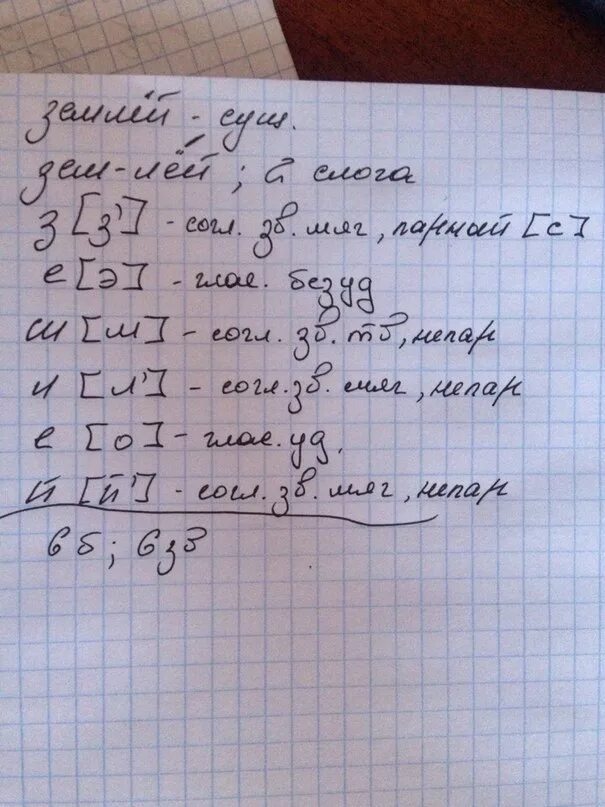 землёй - сущ.
зем-лёй; 2 слога
з [з'] - согл. зв. мяг, парный [с]
е [э] - глас. безуд
м [м] - согл. зв. тв, непар
л [л'] - согл. зв. мяг, непар
е [о] - глас. уд.
й [й'] - согл. зв. мяг, непар
6 б; 6 зв